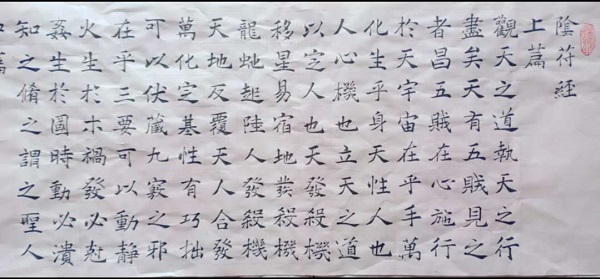 陰符經
上篇
觀天之道執天之行
盡矣天有五賊見之
者昌五賊在心施行
於天宇宙在乎手萬
化生乎身天性人也
人心機也立天之道
以定人也天發殺機
移星易宿地發殺機
龍虵起陸人發殺機
天地反覆天人合發
萬化定基性有巧拙
可以伏藏九竅之邪
在乎三要可以動靜
火生於木禍發必尅
姦生於國時動必潰
知之脩之謂之聖人